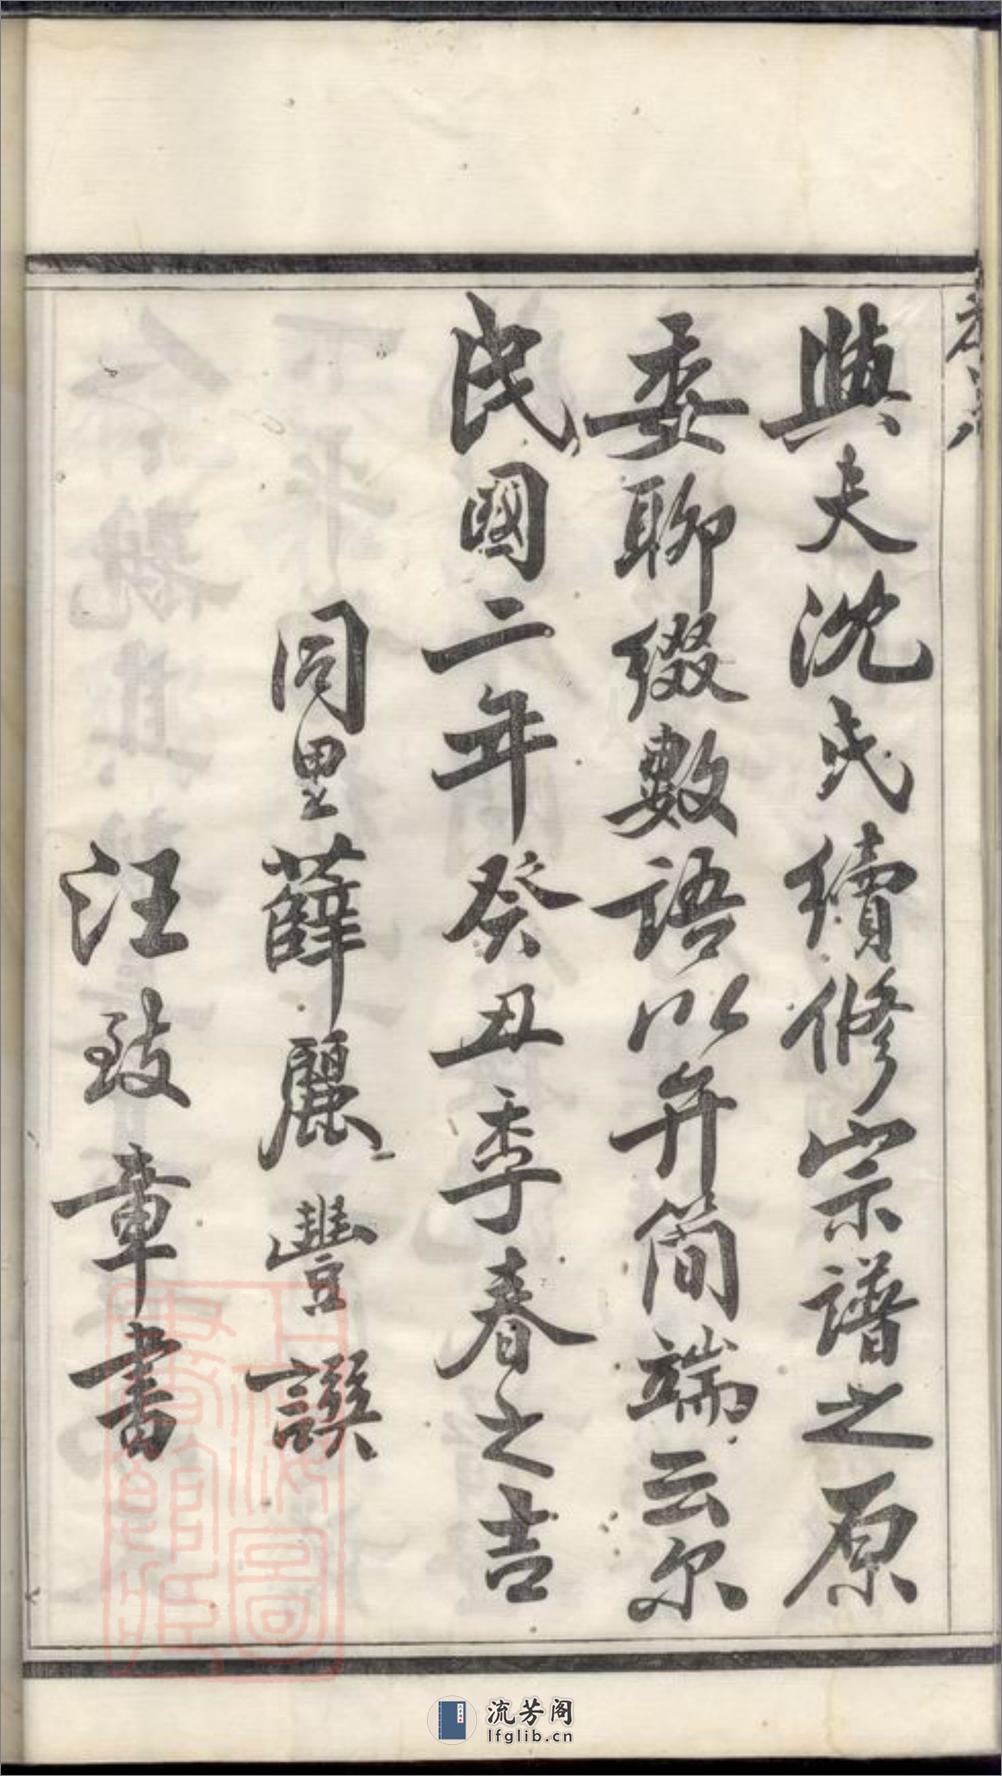 與夫沈氏續修宗譜之原
委聊綴數語以弁簡端云尔
民國二年癸丑季春之吉
同里薛麗豐譔
汪致章書
上海圖書館藏
流芳阁
lfglib.cn